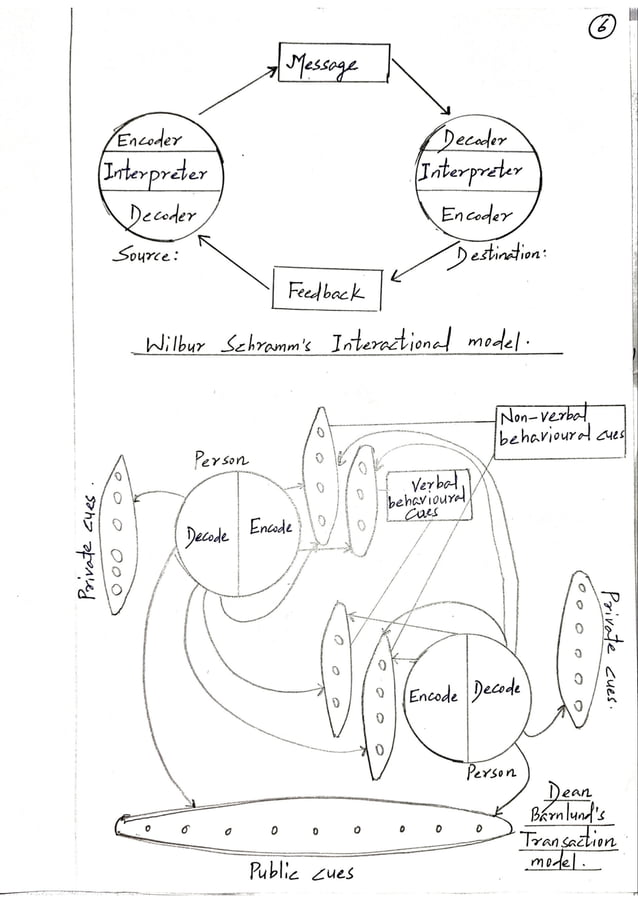 6
Message
Encoder
Interpreter
Decoder
Source:
Decoder
Interpreter
Encoder
Destination:
Feedback
Wilbur Schramm's Interactional model.
Non-verbal
behavioural cues
Verbal
behavioural
cues
Person
Decode
Encode
Private cues.
Private cues.
Encode
Decode
Person
Dean
Barnlund's
Transaction
model.
Public cues